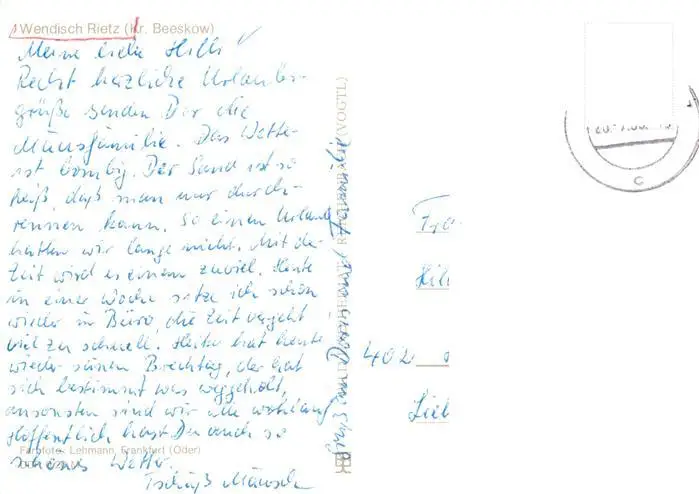 Wendisch Rietz (Kr. Beeskow)
Meine liebe Hilli
Recht herzliche Urlaubs-
grüße senden Dir die
Mäusfamilie. Das Wetter
ist bombig. Der Sand ist so
heiß, daß man nur durch-
rennen kann. So einen Urlaub
hatten wir lange nicht. Mit der
Zeit wird es einem zuviel. Heute
in einer Woche sitze ich schon
wieder im Büro, die Zeit vergeht
viel zu schnell. Heike hat heute
wieder seinen Brechtag, der hat
sich bestimmt was weggeholt,
ansonsten sind wir alle wohlauf
Hoffentlich hast Du auch so
schönes Wetter.
Tschüß Mäusch
Farbfoto: Lehmann, Frankfurt (Oder)
(VOGTL)
402